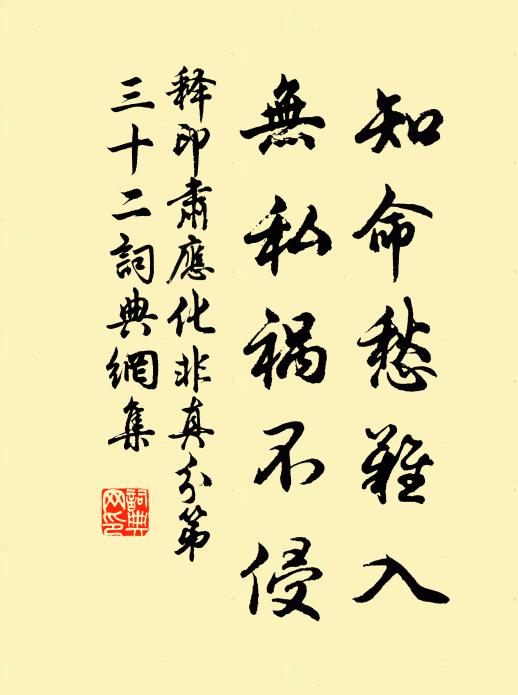 知命愁難入
無私禍不侵
释印肅應化非真分第
三十二詞典網集
詞典
网印